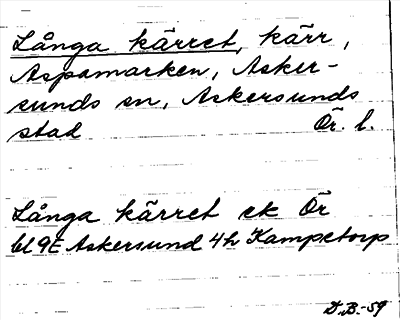 Långa kärret, kärr,
Aspamarken, Asker-
sunds sn, Askersunds
stad Ör. l.
Långa kärret ek Ör
bl 9E Askersund 4h Kampetorp
D.B.-59